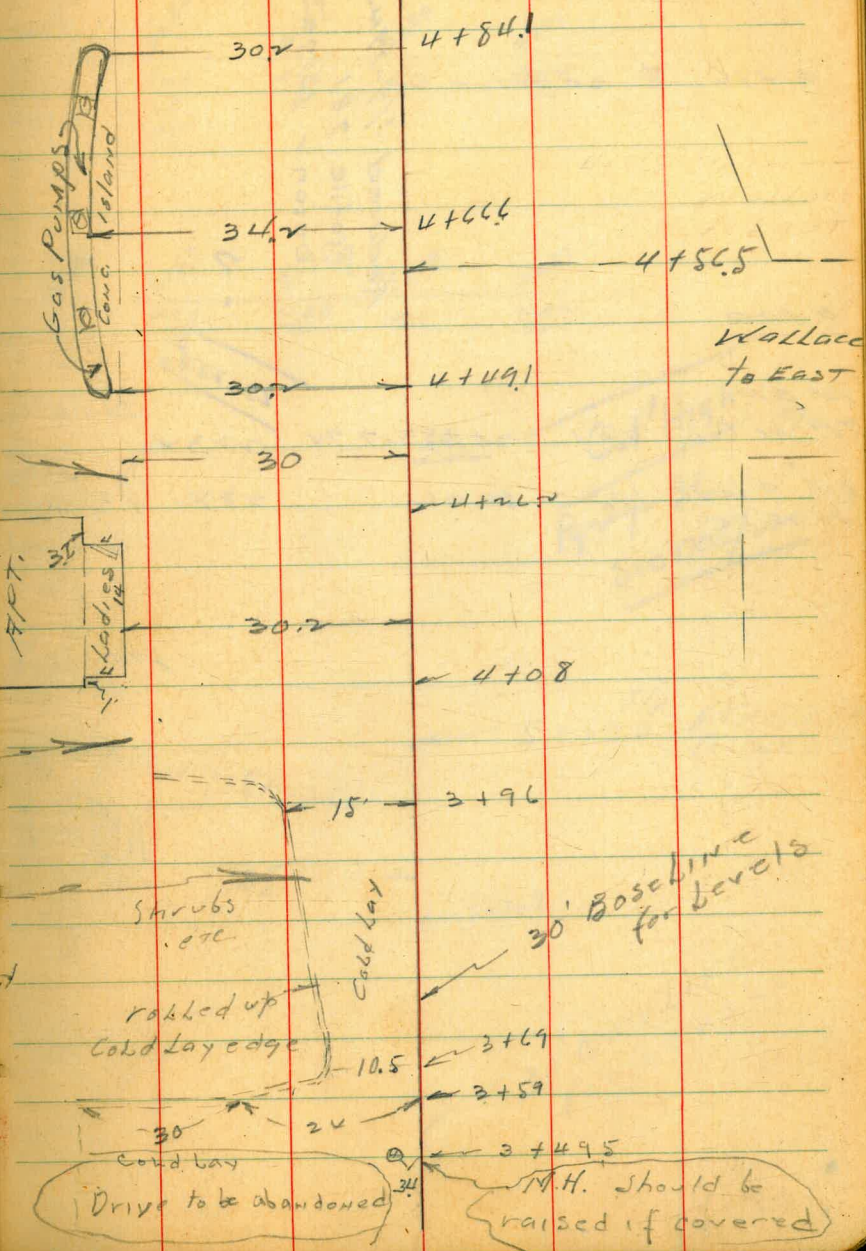 30.2 4+84.1
Gas Pumps
Conc. Island
34.2 4+66.6
4+56.5
Wallace
to East
30.2 4+49.1
30
4+26.2
APT.
Ladies
14
30.2
4+08
15' 3+96
Shrubs
etc
Cold Lay
30' BaseLine
for Levels
rolled up
Cold Lay edge
3+69
10.5
3+59
30 24
Cold Lay
3+49.5
3.4
Drive to be abandoned
M.H. should be
raised if covered